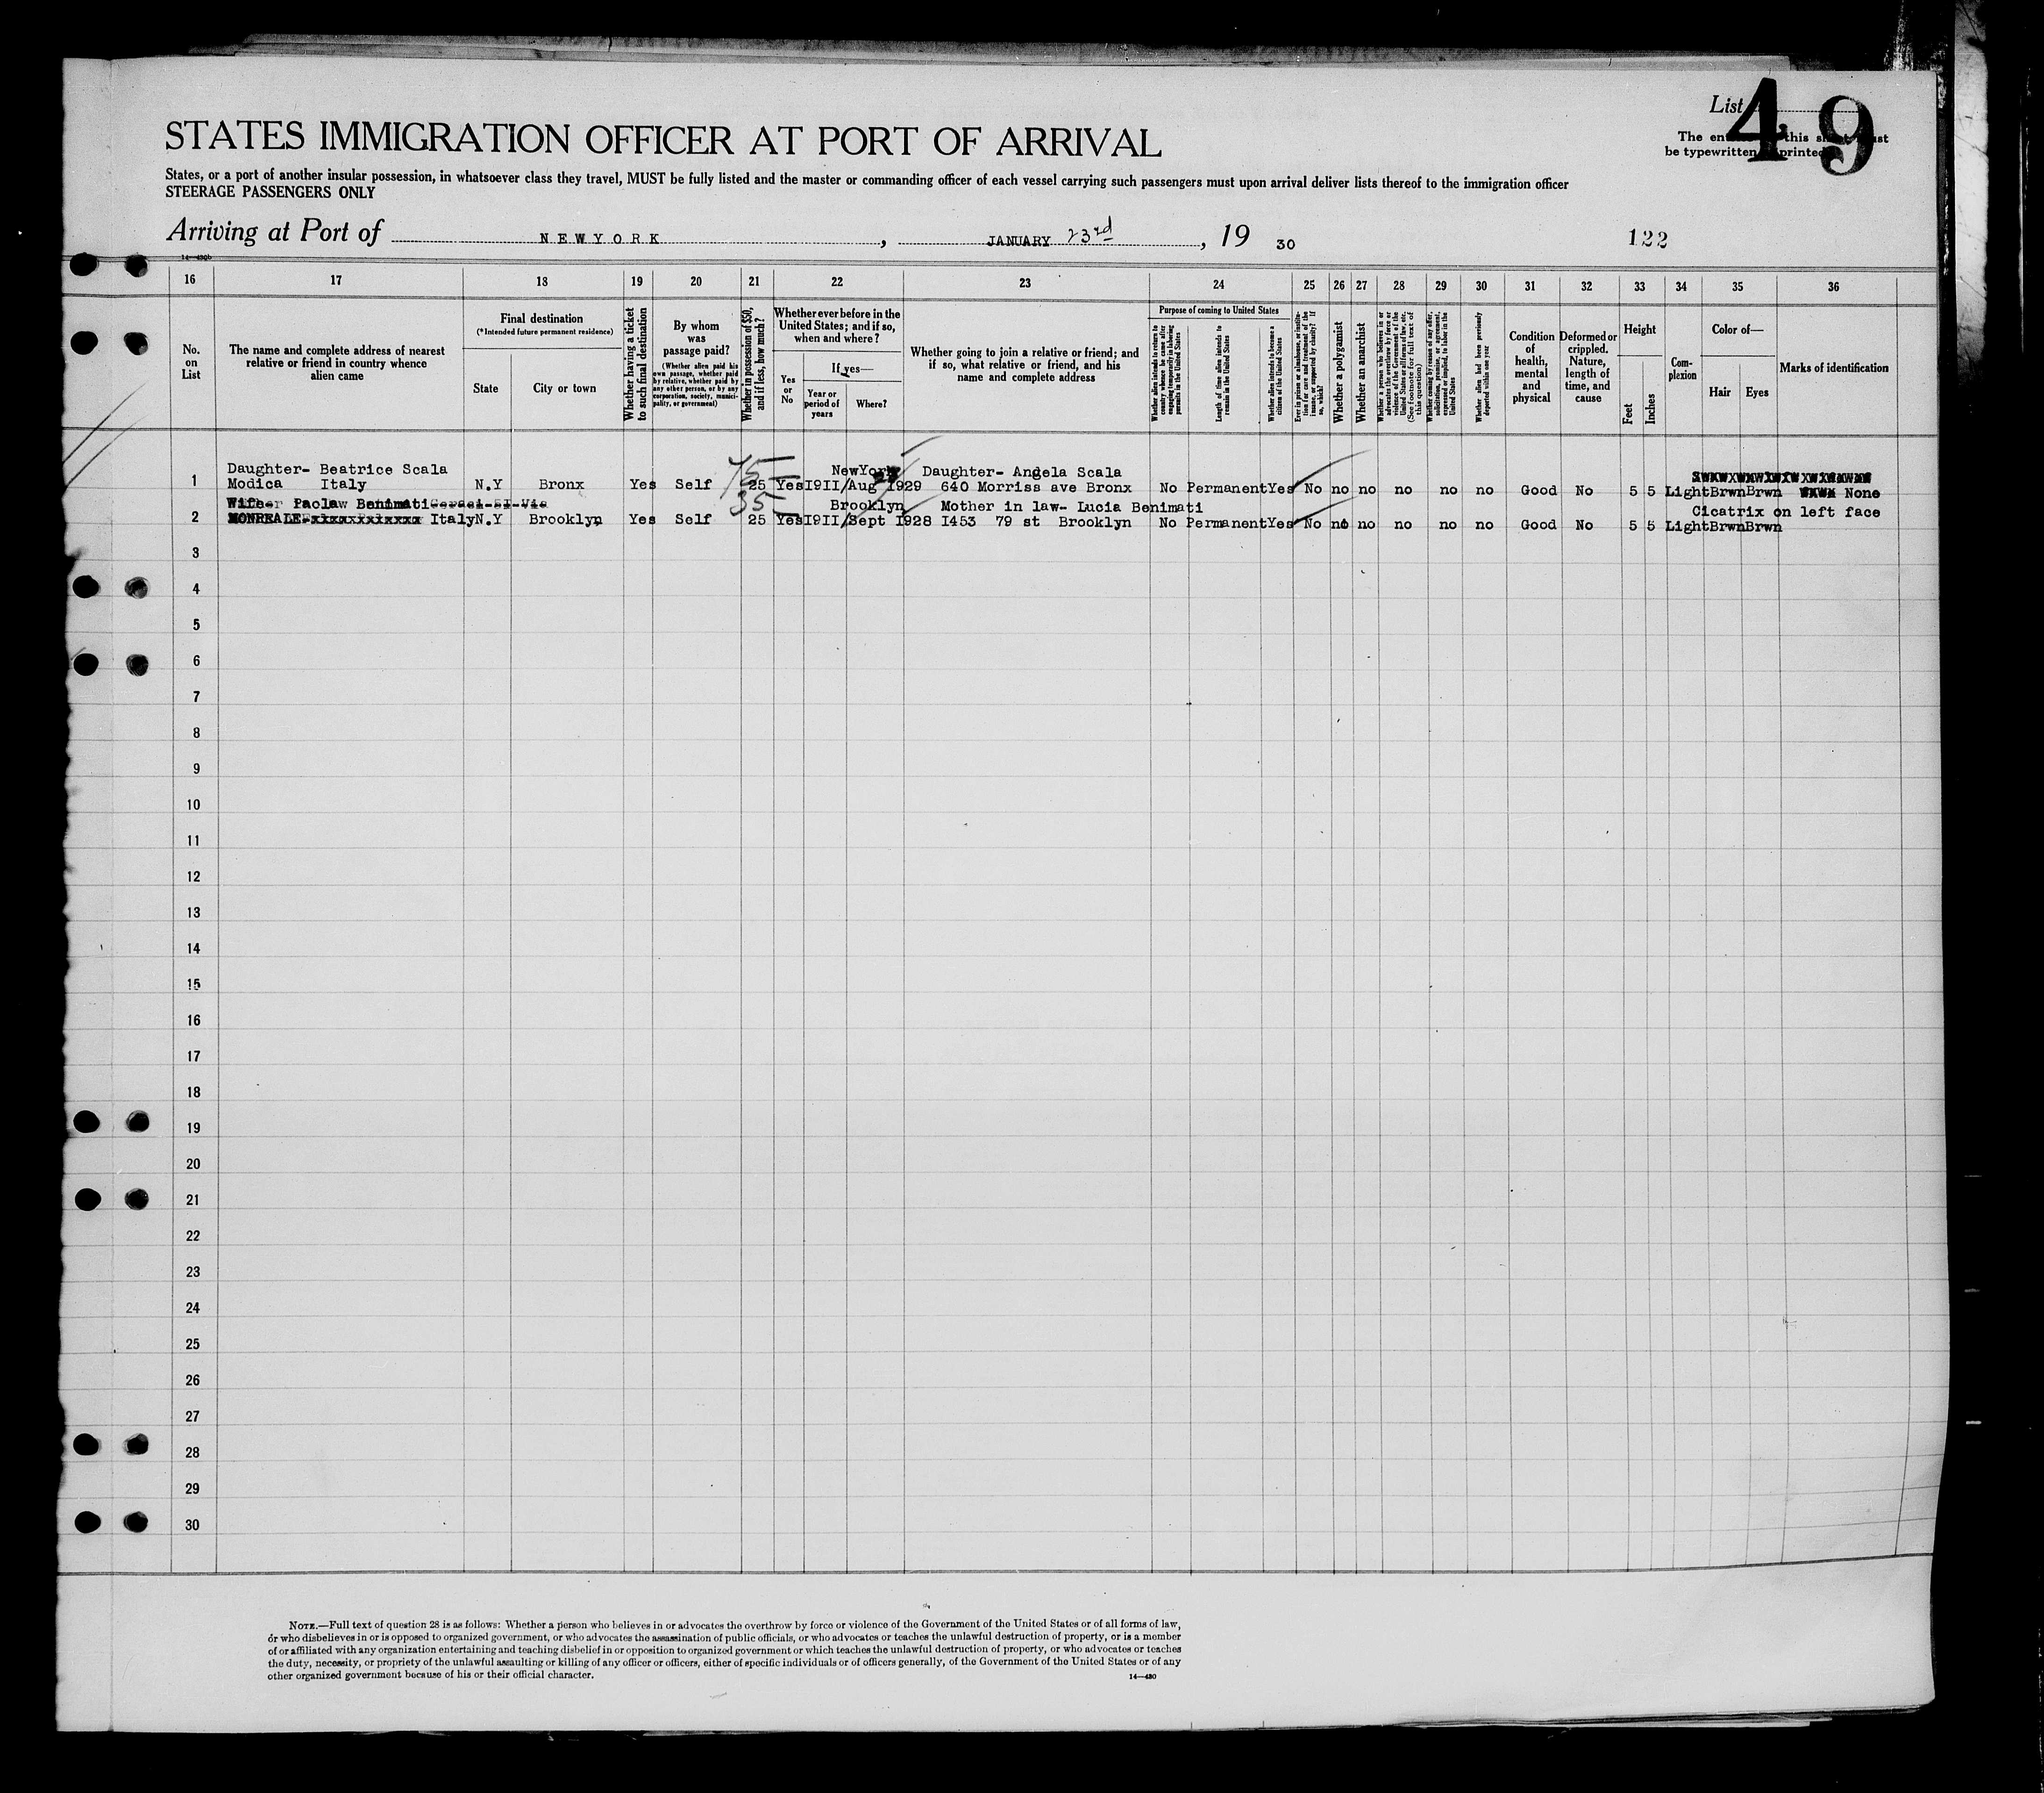 List 4 9
The entries on this sheet must
be typewritten or printed
STATES IMMIGRATION OFFICER AT PORT OF ARRIVAL
States, or a port of another insular possession, in whatsoever class they travel, MUST be fully listed and the master or commanding officer of each vessel carrying such passengers must upon arrival deliver lists thereof to the immigration officer
STEERAGE PASSENGERS ONLY
Arriving at Port of NEWYORK, JANUARY 23rd, 19 30
122
14—430b
16 17 18 19 20 21 22 23 24 25 26 27 28 29 30 31 32 33 34 35 36
No. on List
The name and complete address of nearest relative or friend in country whence alien came
Final destination
(*Intended future permanent residence)
State
City or town
Whether having a ticket to such final destination
By whom was passage paid?
(Whether alien paid his own passage, whether paid by relative, whether paid by any other person, or by any corporation, society, municipality, or government)
Whether in possession of $50, and if less, how much?
Whether ever before in the United States; and if so, when and where?
Yes or No
If yes—
Year or period of years
Where?
Whether going to join a relative or friend; and if so, what relative or friend, and his name and complete address
Purpose of coming to United States
Whether alien intends to return to country whence he came after engaging temporarily in laboring pursuits in the United States
Length of time alien intends to remain in the United States
Whether alien intends to become a citizen of the United States
Ever in prison or almshouse, or institution for care and treatment of the insane, or supported by charity? If so, which?
Whether a polygamist
Whether an anarchist
Whether a person who believes in or advocates the overthrow by force or violence of the Government of the United States or all forms of law, etc. (See footnote for full text of this question)
Whether coming by reason of any offer, solicitation, promise, or agreement, expressed or implied, to labor in the United States
Whether alien had been previously deported within one year
Condition of health, mental and physical
Deformed or crippled. Nature, length of time, and cause
Height
Feet
Inches
Complexion
Color of—
Hair
Eyes
Marks of identification
Daughter- Beatrice Scala NewYork Daughter- Angela Scala
1 Modica Italy N.Y Bronx Yes Self 75 25 Yes I9II/Aug 1929 640 Morriss ave Bronx No Permanent Yes No no no no no no Good No 5 5 Light Brwn Brwn None
Paolaw Benimati Brooklyn Mother in law- Lucia Benimati Cicatrix on left face
2 MONREALE Italy N.Y Brooklyn Yes Self 35 25 Yes I9II/Sept 1928 I453 79 st Brooklyn No Permanent Yes No no no no no no Good No 5 5 Light Brwn Brwn
3
4
5
6
7
8
9
10
11
12
13
14
15
16
17
18
19
20
21
22
23
24
25
26
27
28
29
30
NOTE.—Full text of question 28 is as follows: Whether a person who believes in or advocates the overthrow by force or violence of the Government of the United States or of all forms of law,
or who disbelieves in or is opposed to organized government, or who advocates the assassination of public officials, or who advocates or teaches the unlawful destruction of property, or is a member
of or affiliated with any organization entertaining and teaching disbelief in or opposition to organized government or which teaches the unlawful destruction of property, or who advocates or teaches
the duty, necessity, or propriety of the unlawful assaulting or killing of any officer or officers, either of specific individuals or of officers generally, of the Government of the United States or of any
other organized government because of his or their official character.
14—430